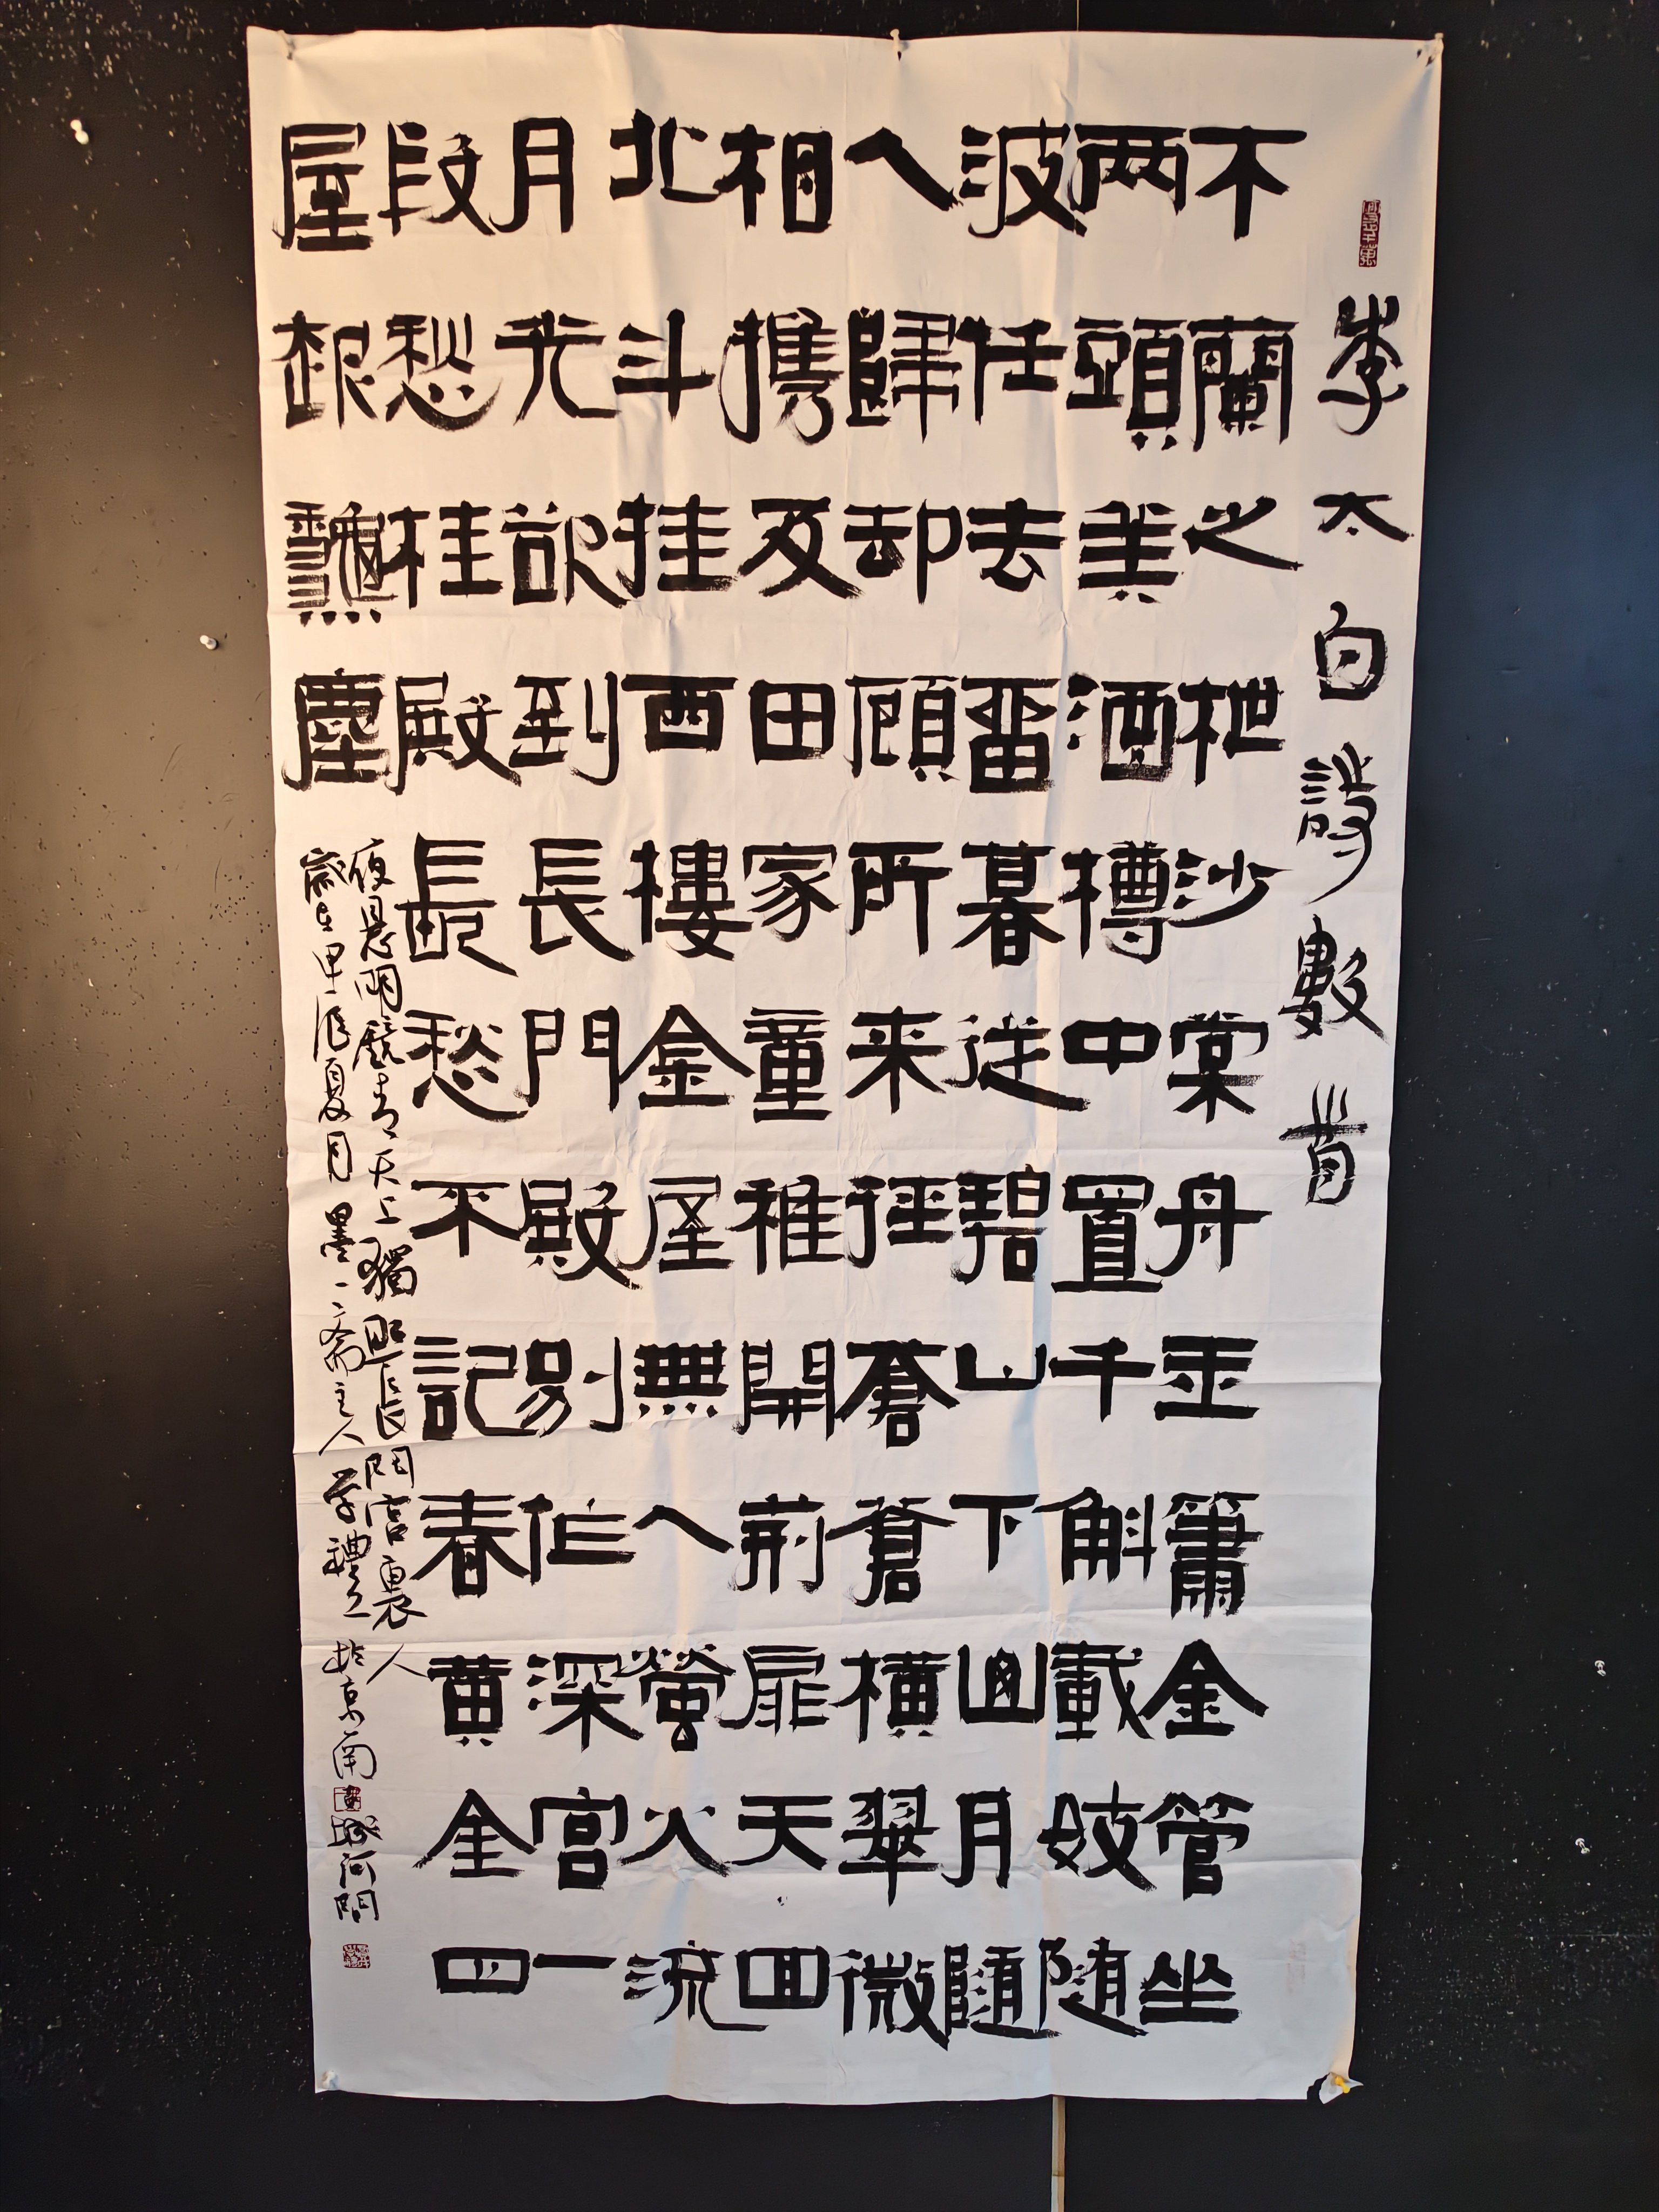 李太白詩數首
不蘭之枻沙棠舟玉簫金管坐
两頭美酒樽中置千斛載妓随
波任去留暮從碧山下山月隨
人歸却顧所来徑蒼蒼橫翠微
相携及田家童稚開荆扉天回
北斗挂西樓金屋無人螢火流
月光欲到長門殿別作深宮一
段愁桂殿長愁不記春黄金四
屋起龝塵
夜懸明鏡青天上獨照長門宮裏人
歲在甲辰夏月墨一斋主人 於京南 城河間